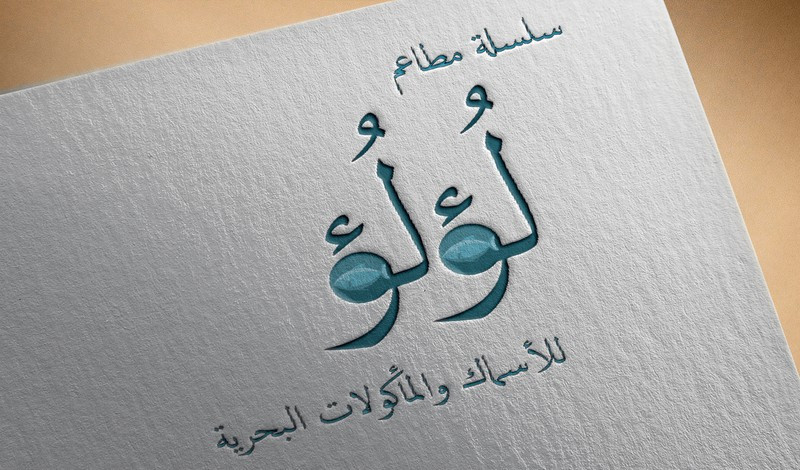 سلسلة مطاعم
لُؤلُؤ
للأسماك والمأكولات البحرية